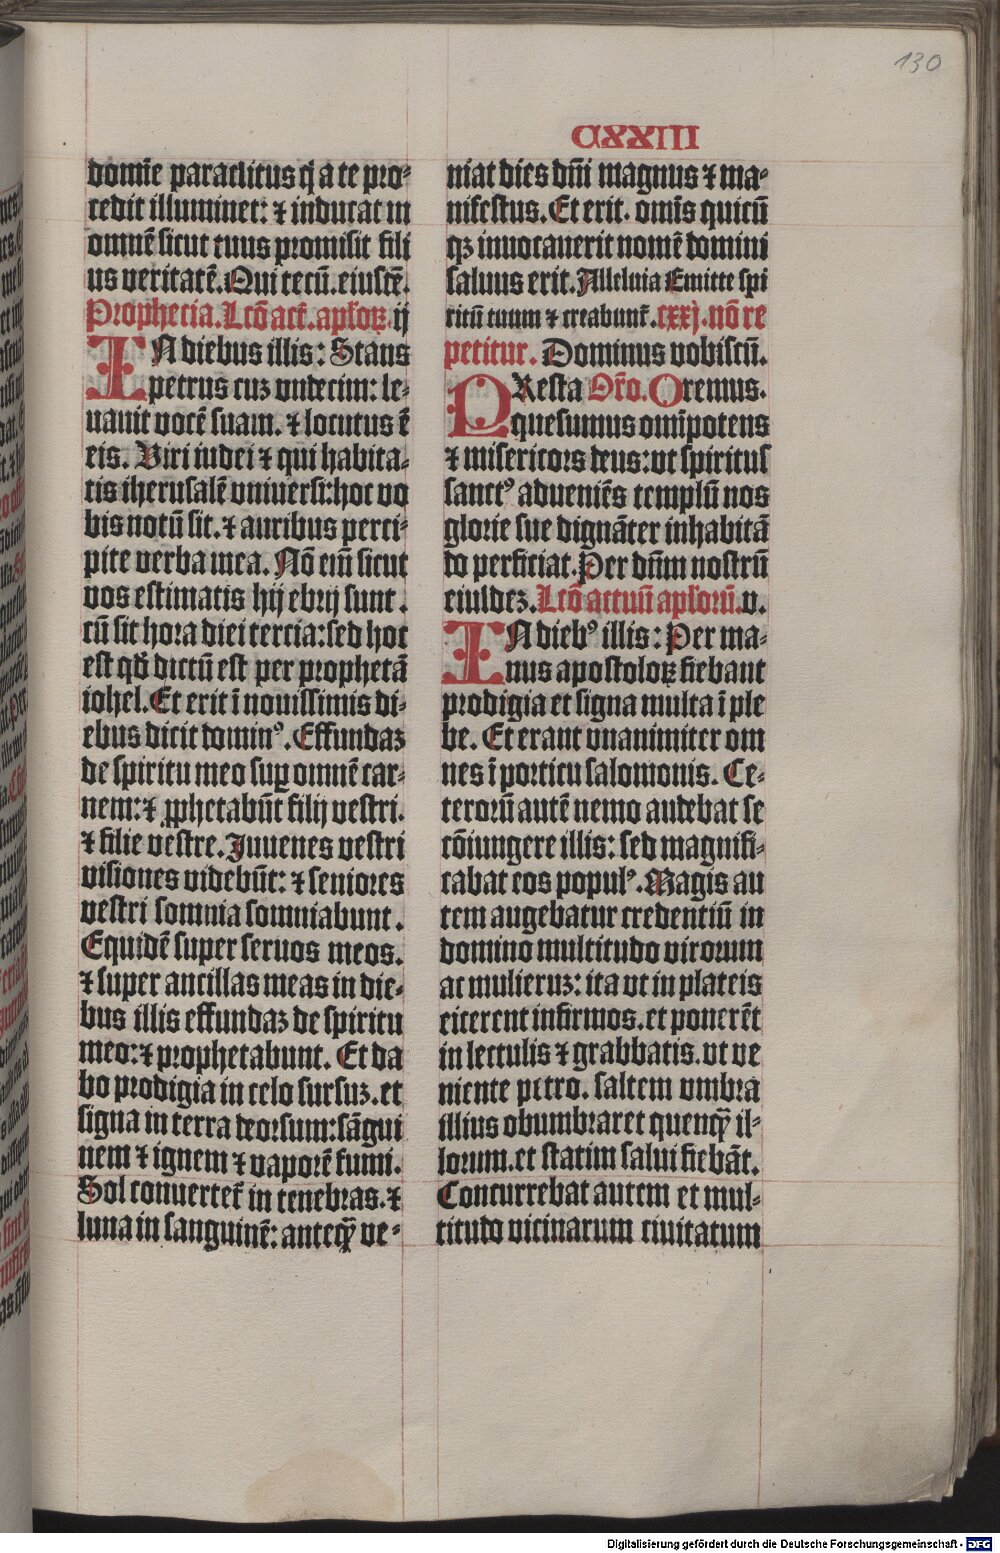 130
CXXIII
domīe paraclitus q̄ a te pro⸗
cedit illuminet: ⁊ inducat in
omnē sicut tuus promisit fili
us veritatē. Qui tecū. eiusdē.
Prophecia. Lcō act. apl'oꝝ. ij
IN diebus illis: Stans
petrus cuȝ vndecim: le⸗
uauit vocē suam. ⁊ locutus ē
eis. Viri iudei ⁊ qui habita⸗
tis iherusalē vniuersi: hoc vo
bis notū sit. ⁊ auribus perci⸗
pite verba mea. Nō eīn sicut
vos estimatis hij ebrij sunt.
cū sit hora diei tercia: sed hoc
est qđ dictū est per prophetā
iohel. Et erit ī nouissimis di⸗
ebus dicit domin⁹. Effundaȝ
de spiritu meo suꝑ omnē car⸗
nem: ⁊ ꝓphetabūt filij vestri.
⁊ filie vestre. Juuenes vestri
visiones videbūt: ⁊ seniores
vestri somnia somniabunt.
Equidē super seruos meos.
⁊ super ancillas meas in die⸗
bus illis effundaȝ de spiritu
meo: ⁊ prophetabunt. Et da
bo prodigia in celo sursuȝ. et
signa in terra deorsum: sāgui
nem ⁊ ignem ⁊ vaporē fumi.
Sol conuertet' in tenebras. ⁊
luna in sanguinē: anteq̄ȝ ve⸗
niat dies dn̄i magnus ⁊ ma⸗
nifestus. Et erit. omīs quicū
qȝ inuocauerit nomē domini
saluus erit. Alleluia Emitte spi
ritū tuum ⁊ creabunt'. cxxj. nō re
petitur. Dominus vobiscū.
PResta Or̄o. Oremus.
quesumus omīpotens
⁊ misericors deus: vt spiritus
sanct⁹ adueniēs templū nos
glorie sue dignāter inhabitā
do perficiat. Per dn̄m nostrū
eiusdeȝ. Lcō actuū apl'orū. v.
IN dieb⁹ illis: Per ma⸗
nus apostoloꝝ fiebant
prodigia et signa multa ī ple
be. Et erant vnanimiter om
nes ī porticu salomonis. Ce⸗
terorū autē nemo audebat se
cōiungere illis: sed magnifi⸗
cabat eos popul⁹. Magis au
tem augebatur credentiū in
domino multitudo virorum
ac mulieruȝ: ita vt in plateis
eicerent infirmos. et ponerēt
in lectulis ⁊ grabbatis. vt ve
niente petro. saltem vmbra
illius obumbraret quenq̄ȝ il⸗
lorum. et statim salui fiebāt.
Concurrebat autem et mul⸗
titudo vicinarum ciuitatum
Digitalisierung gefördert durch die Deutsche Forschungsgemeinschaft - DFG